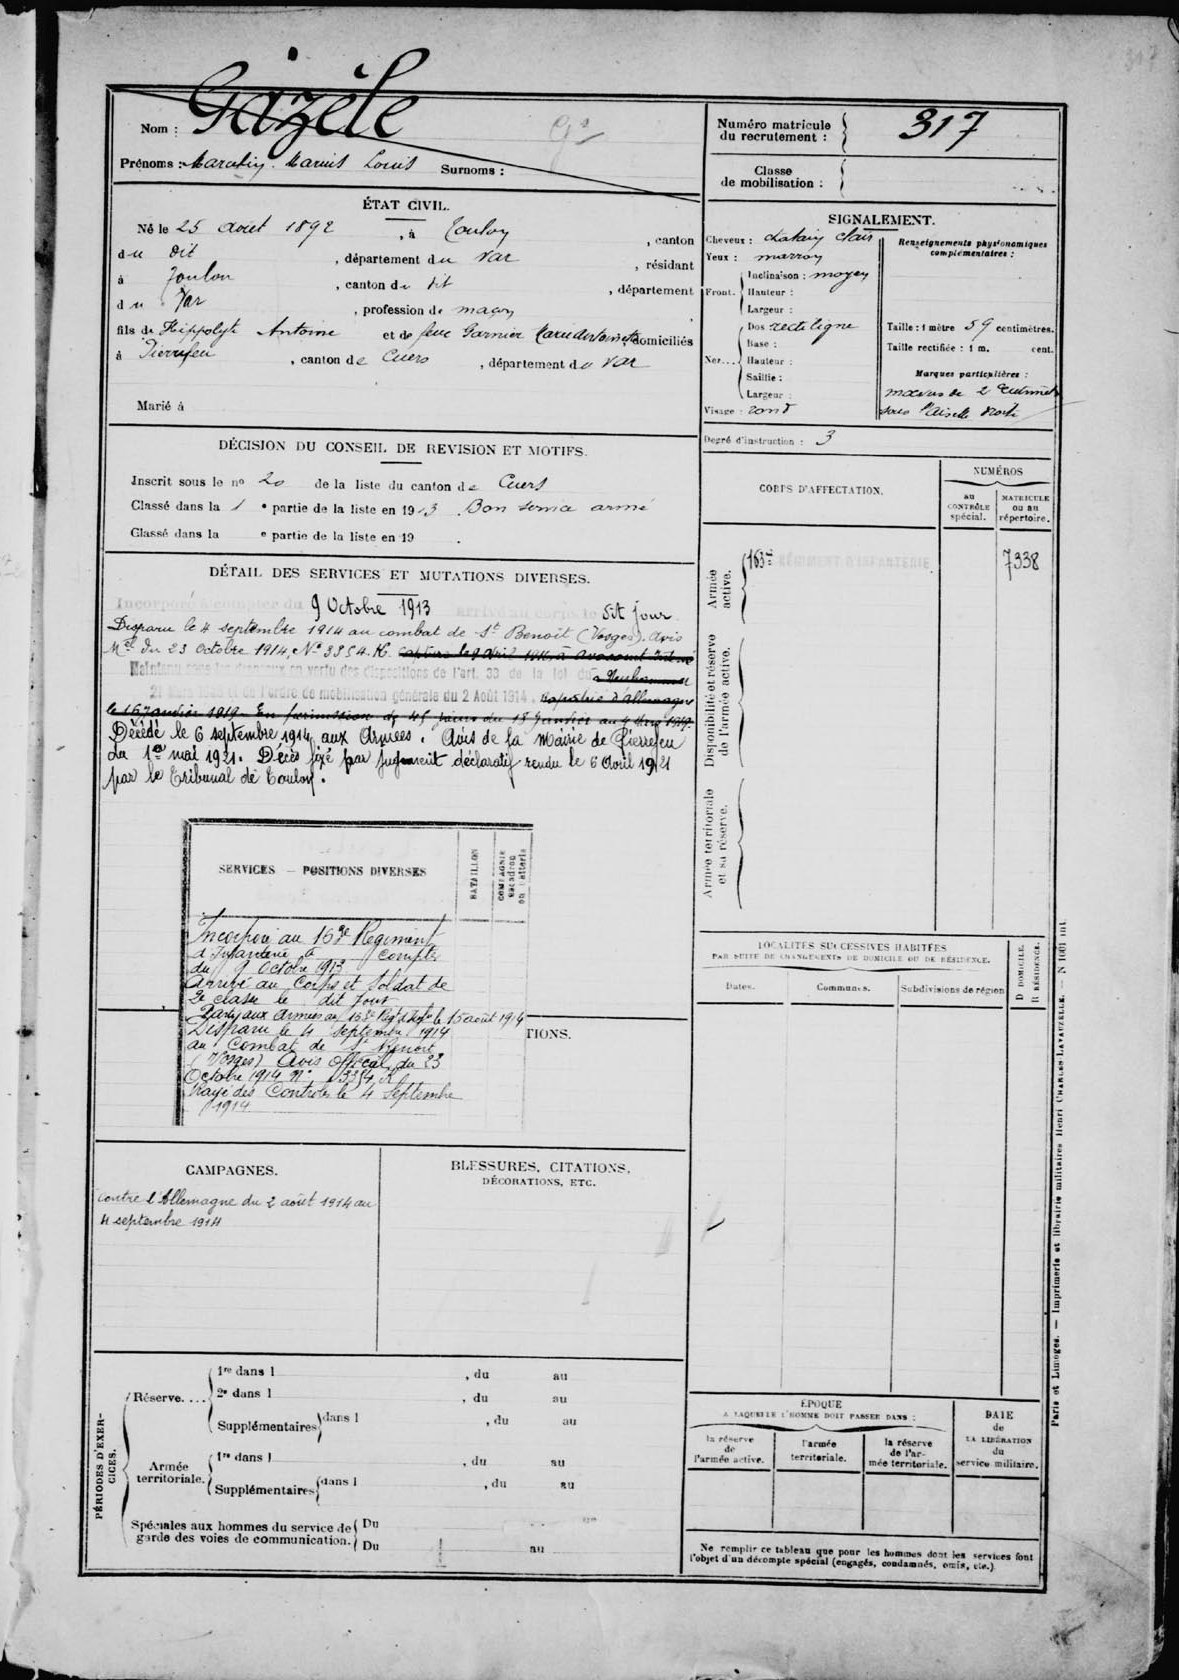 Nom : Gazèle
Prénoms : Marius Louis Surnoms :
Numéro matricule du recrutement : 317
Classe de mobilisation :
ÉTAT CIVIL.
Né le 25 août 1892, à Toulon, canton
du dit, département du Var, résidant
à Toulon, canton du dit, département
du Var, profession de maçon
fils de Hippolyte Antoine et de feue Garnier domiciliés
à Pierrefeu, canton de Cuers, département du Var
Marié à
SIGNALEMENT.
Cheveux : chatain clair
Yeux : marron
Front. Inclinaison : moyen
Hauteur :
Largeur :
Nez... Dos rectiligne
Base :
Hauteur :
Saillie :
Largeur :
Visage : rond
Renseignements physionomiques complémentaires :
Taille : 1 mètre 59 centimètres.
Taille rectifiée : 1 m. cent.
Marques particulières :
sous l'aisselle droite
Degré d'instruction : 3
DÉCISION DU CONSEIL DE REVISION ET MOTIFS.
Inscrit sous le nº 20 de la liste du canton de Cuers
Classé dans la 1 e partie de la liste en 1913 Bon service armé
Classé dans la e partie de la liste en 19 .
CORPS D'AFFECTATION.
NUMÉROS
au CONTRÔLE spécial.
MATRICULE ou au répertoire.
Armée active.
163e RÉGIMENT D'INFANTERIE
7338
Disponibilité et réserve de l'armée active.
Armée territoriale et sa réserve.
DÉTAIL DES SERVICES ET MUTATIONS DIVERSES.
Incorporé à compter du 9 Octobre 1913 arrivé au corps le dit jour
Disparu le 4 septembre 1914 au combat de St Benoît (Vosges). Avis
Mel du 23 octobre 1914, Nº 3354.K.
Maintenu sous les drapeaux en vertu des dispositions de l'art. 33 de la loi du
21 Mars 1905 et de l'ordre de mobilisation générale du 2 Août 1914, rapatrié d'allemagne
le 16 janvier 1919. En permission de 45 jours du 18 Janvier au 4 Mars 1919.
Décédé le 6 septembre 1914 aux Armées. Avis de la Mairie de Pierrefeu
du 1er mai 1921. Décès fixé par jugement déclaratif rendu le 6 Avril 1921
par le Tribunal de Toulon.
SERVICES — POSITIONS DIVERSES
BATAILLON
COMPAGNIE escadron ou batterie
Incorporé au 163e Régiment
d'Infanterie à compter
du 9 Octobre 1913
Arrivé au Corps et Soldat de
2e classe le dit Jour
Parti aux Armées au 163e Régt d'Infie le 15 août 1914
Disparu le 4 Septembre 1914
au Combat de St Benoit
(Vosges) Avis Officiel du 23
Octobre 1914 Nº 3354 K
Rayé des Controles le 4 Septembre
1914
TIONS.
LOCALITÉS SUCCESSIVES HABITÉES
PAR SUITE DE CHANGEMENTS DE DOMICILE OU DE RÉSIDENCE.
Dates.
Communes.
Subdivisions de région
D DOMICILE.
R RÉSIDENCE.
CAMPAGNES.
Contre l'Allemagne du 2 août 1914 au
4 septembre 1914
BLESSURES, CITATIONS,
DÉCORATIONS, ETC.
PÉRIODES D'EXERCICES.
Réserve....
1re dans l , du au
2e dans l , du au
Supplémentaires dans l , du au
Armée territoriale.
1re dans l , du au
Supplémentaires dans l , du au
Spéciales aux hommes du service de Du
garde des voies de communication. Du au
ÉPOQUE
A LAQUELLE L'HOMME DOIT PASSER DANS :
la réserve de l'armée active.
l'armée territoriale.
la réserve de l'armée territoriale.
DATE de LA LIBÉRATION du service militaire.
Ne remplir ce tableau que pour les hommes dont les services font
l'objet d'un décompte spécial (engagés, condamnés, omis, etc.)
Paris et Limoges. — Imprimerie et librairie militaires Henri CHARLES-LAVAUZELLE.